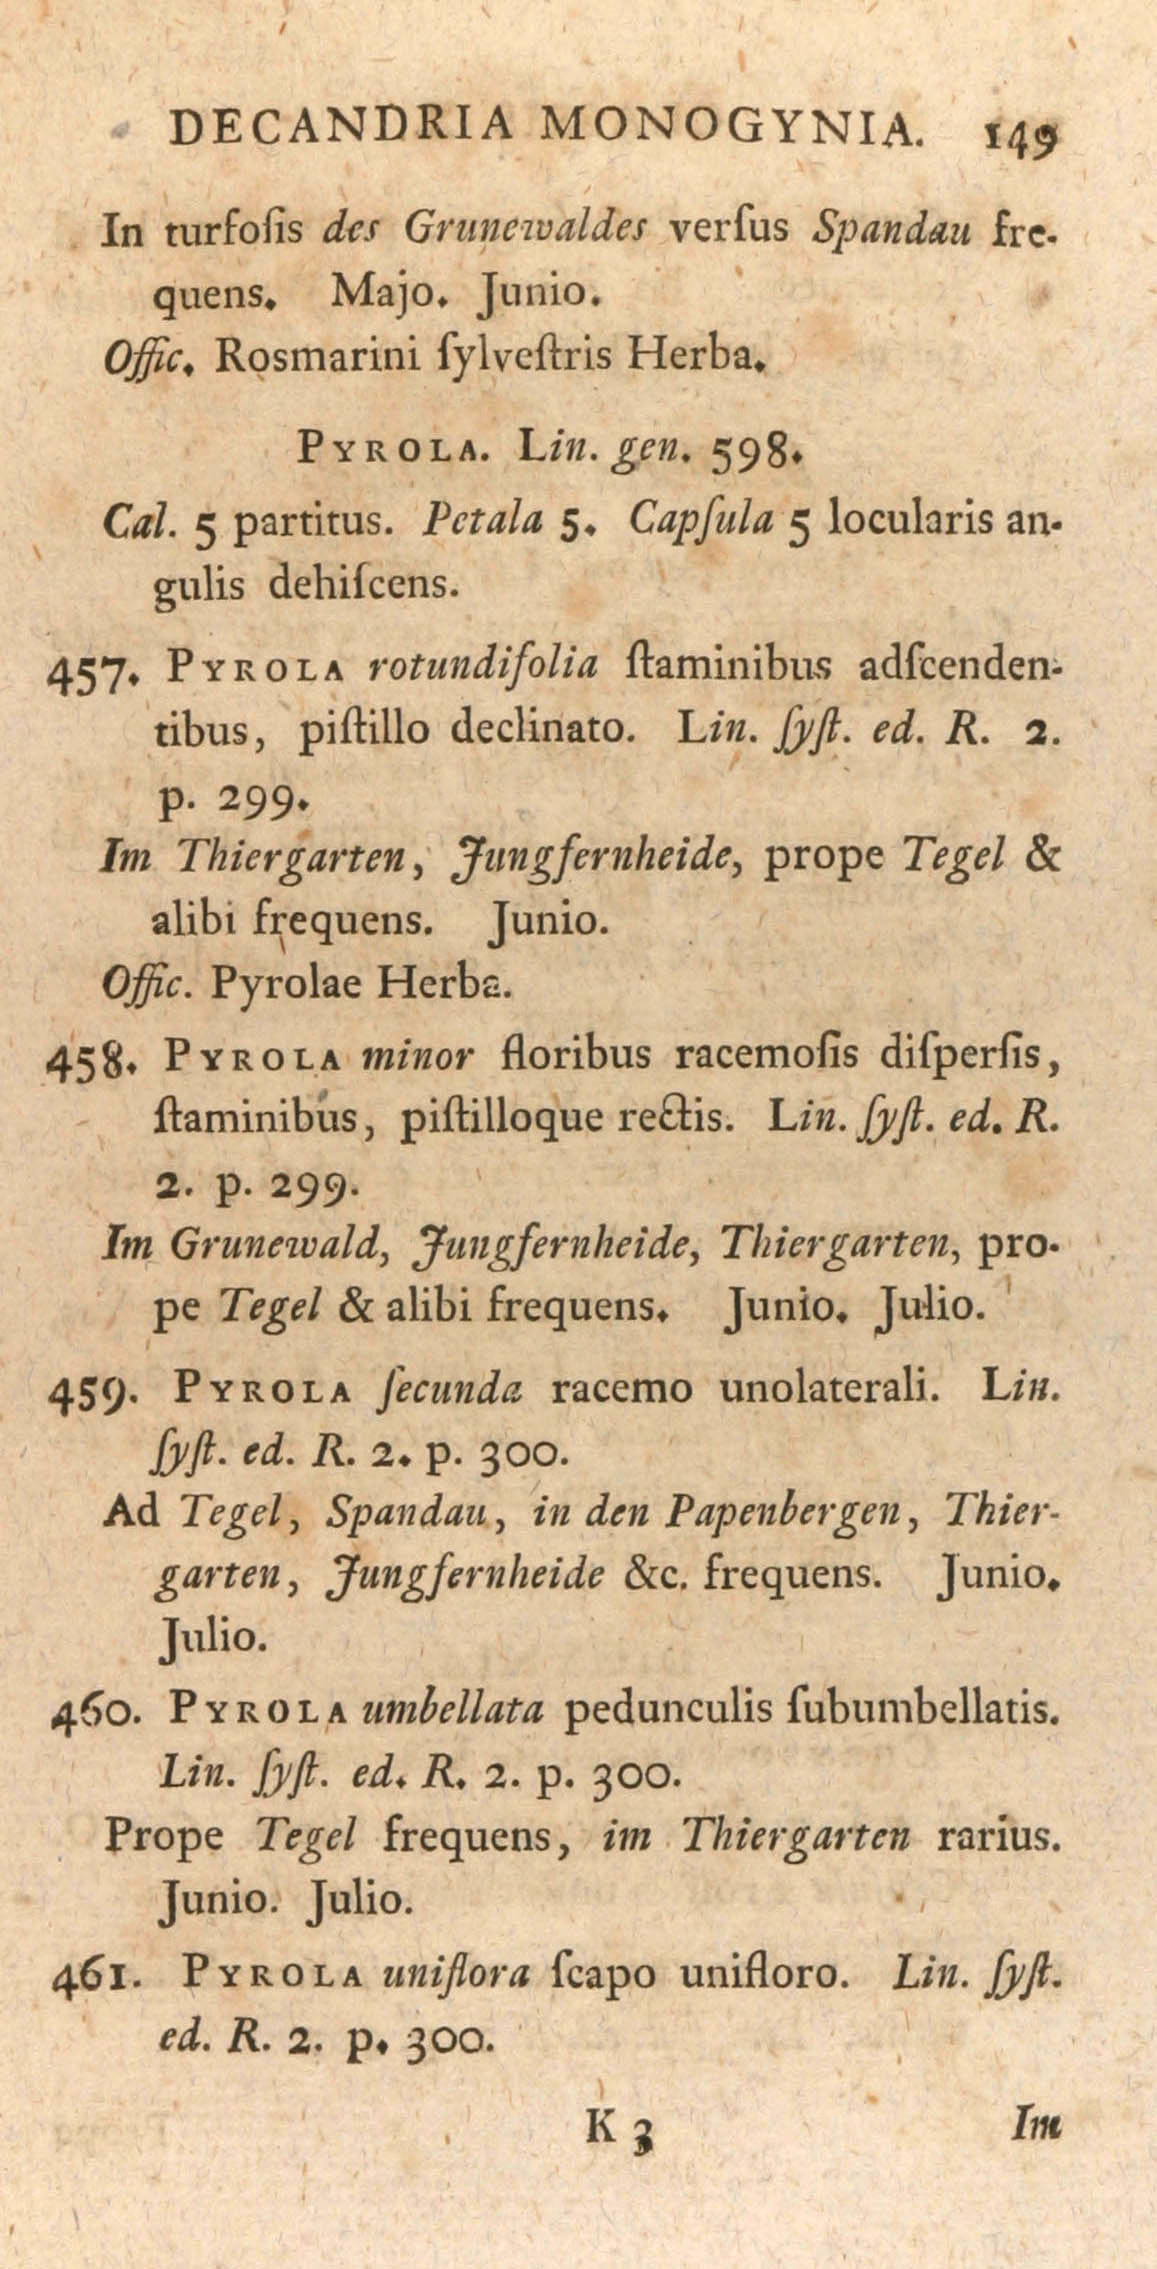 DECANDRIA MONOGYNIA. 149
In turfoſis des Grunewaldes verſus Spandau fre-
quens. Majo. Junio.
Offic. Rosmarini ſylveſtris Herba.
PYROLA. Lin. gen. 598.
Cal. 5 partitus. Petala 5. Capſula 5 locularis an-
gulis dehiſcens.
457. PYROLA rotundifolia ſtaminibus adſcenden-
tibus, piſtillo declinato. Lin. ſyſt. ed. R. 2.
p. 299.
Im Thiergarten, Jungfernheide, prope Tegel &
alibi frequens. Junio.
Offic. Pyrolae Herba.
458. PYROLA minor floribus racemoſis diſperſis,
ſtaminibus, piſtilloque rectis. Lin. ſyſt. ed. R.
2. p. 299.
Im Grunewald, Jungfernheide, Thiergarten, pro-
pe Tegel & alibi frequens. Junio. Julio.
459. PYROLA ſecunda racemo unolaterali. Lin.
ſyſt. ed. R. 2. p. 300.
Ad Tegel, Spandau, in den Papenbergen, Thier-
garten, Jungfernheide &c. frequens. Junio.
Julio.
460. PYROLA umbellata pedunculis ſubumbellatis.
Lin. ſyſt. ed. R. 2. p. 300.
Prope Tegel frequens, im Thiergarten rarius.
Junio. Julio.
461. PYROLA uniflora ſcapo unifloro. Lin. ſyſt.
ed. R. 2. p. 300.
K 3 Im